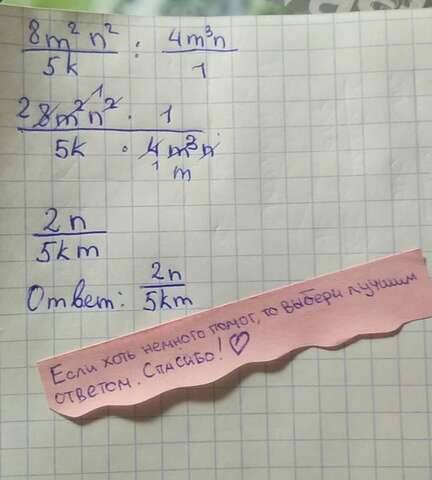 8m²n² : 4m³n
5k 1
2 8m²n² · 1
5k · 4m³n
1 m
2n
5km
Ответ: 2n
5km
Если хоть немного помог, то выбери лучшим
ответом. Спасибо! ♡